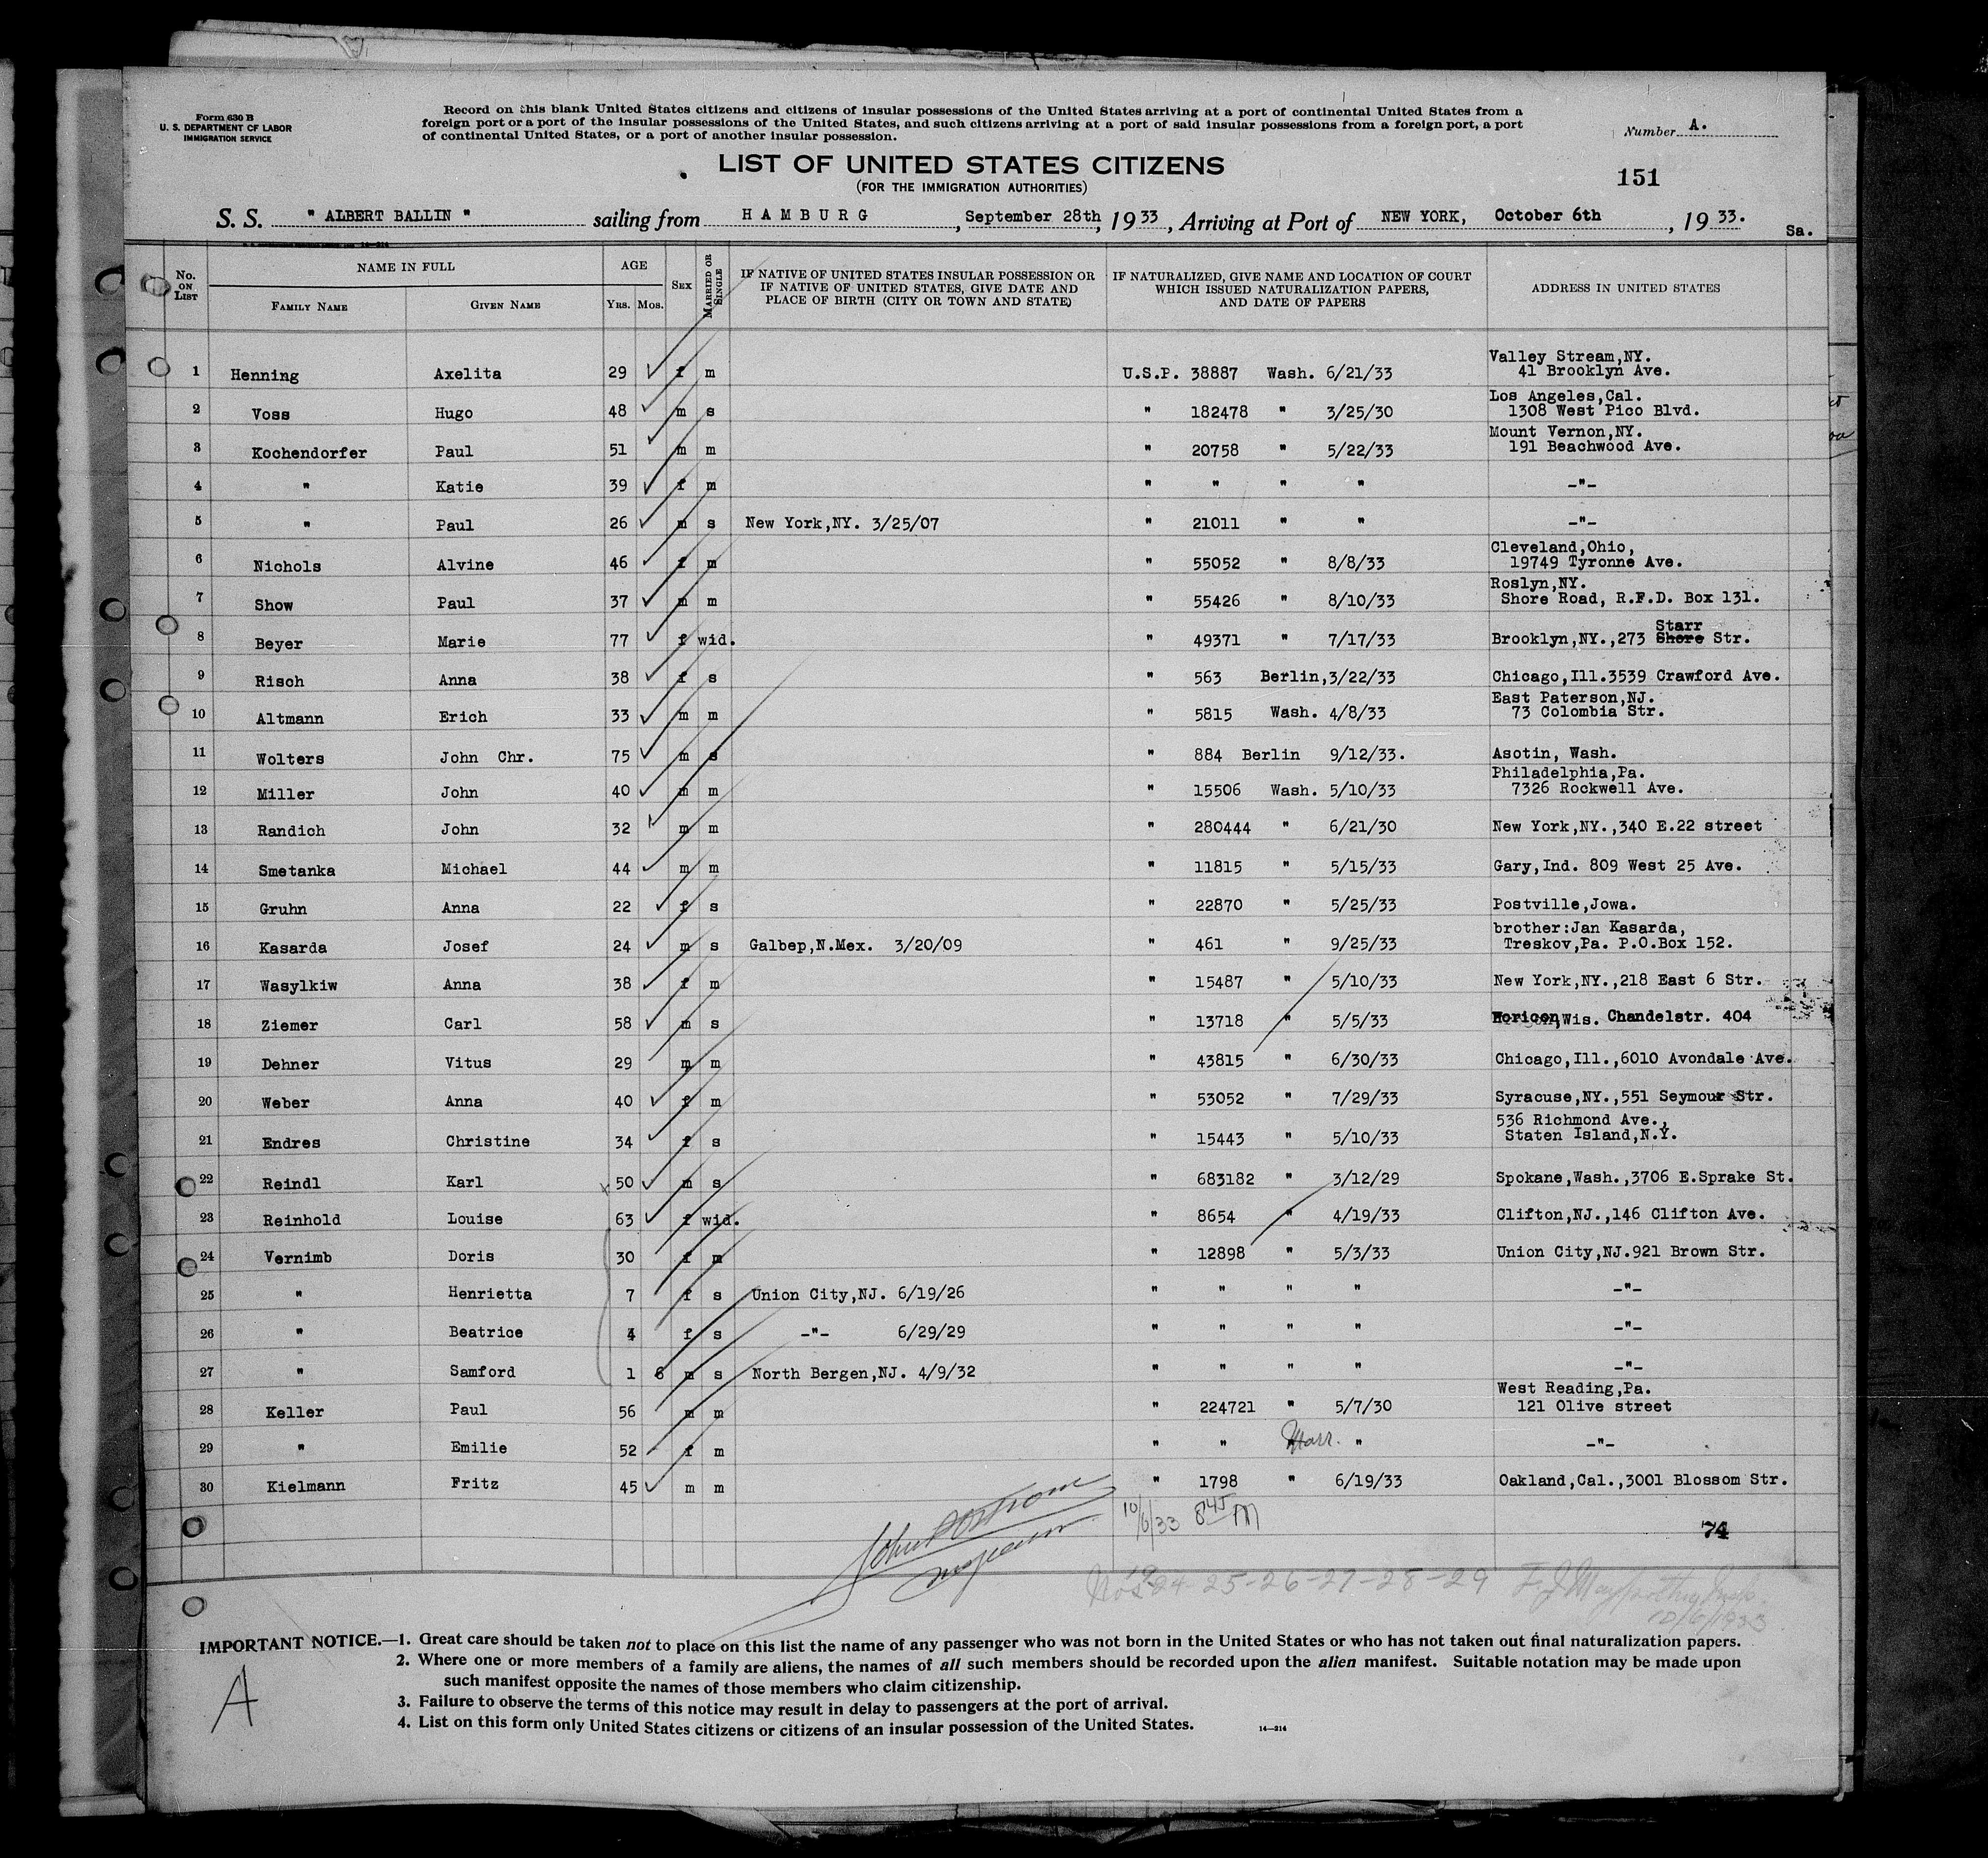 Form 630 B
U. S. DEPARTMENT OF LABOR
IMMIGRATION SERVICE
Record on this blank United States citizens and citizens of insular possessions of the United States arriving at a port of continental United States from a
foreign port or a port of the insular possessions of the United States, and such citizens arriving at a port of said insular possessions from a foreign port, a port
of continental United States, or a port of another insular possession.
Number A.
LIST OF UNITED STATES CITIZENS
(FOR THE IMMIGRATION AUTHORITIES)
151
S. S. " ALBERT BALLIN " sailing from HAMBURG, September 28th, 1933, Arriving at Port of NEW YORK, October 6th, 1933.
Sa.
No. ON LIST NAME IN FULL FAMILY NAME GIVEN NAME AGE YRS. MOS. SEX MARRIED OR SINGLE
IF NATIVE OF UNITED STATES INSULAR POSSESSION OR
IF NATIVE OF UNITED STATES, GIVE DATE AND
PLACE OF BIRTH (CITY OR TOWN AND STATE)
IF NATURALIZED, GIVE NAME AND LOCATION OF COURT
WHICH ISSUED NATURALIZATION PAPERS,
AND DATE OF PAPERS
ADDRESS IN UNITED STATES
1 Henning Axelita 29 f m U.S.P. 38887 Wash. 6/21/33 Valley Stream,NY.
41 Brooklyn Ave.
2 Voss Hugo 48 m s " 182478 " 3/25/30 Los Angeles,Cal.
1308 West Pico Blvd.
3 Kochendorfer Paul 51 m m " 20758 " 5/22/33 Mount Vernon,NY.
191 Beachwood Ave.
4 " Katie 39 f m " " " " -"-
5 " Paul 26 m s New York,NY. 3/25/07 " 21011 " " -"-
6 Nichols Alvine 46 f m " 55052 " 8/8/33 Cleveland,Ohio,
19749 Tyronne Ave.
7 Show Paul 37 m m " 55426 " 8/10/33 Roslyn,NY.
Shore Road, R.F.D. Box 131.
8 Beyer Marie 77 f wid. " 49371 " 7/17/33 Brooklyn,NY.,273 Shore Starr Str.
9 Risch Anna 38 f s " 563 Berlin,3/22/33 Chicago,Ill.3539 Crawford Ave.
10 Altmann Erich 33 m m " 5815 Wash. 4/8/33 East Paterson,NJ.
73 Colombia Str.
11 Wolters John Chr. 75 m s " 884 Berlin 9/12/33. Asotin, Wash.
12 Miller John 40 m m " 15506 Wash. 5/10/33 Philadelphia,Pa.
7326 Rockwell Ave.
13 Randich John 32 m m " 280444 " 6/21/30 New York,NY.,340 E.22 street
14 Smetanka Michael 44 m m " 11815 " 5/15/33 Gary,Ind. 809 West 25 Ave.
15 Gruhn Anna 22 f s " 22870 " 5/25/33 Postville,Jowa.
16 Kasarda Josef 24 m s Galbep,N.Mex. 3/20/09 " 461 " 9/25/33 brother:Jan Kasarda,
Treskov,Pa. P.O.Box 152.
17 Wasylkiw Anna 38 f m " 15487 " 5/10/33 New York,NY.,218 East 6 Str.
18 Ziemer Carl 58 m s " 13718 " 5/5/33 Horicon,Wis. Chandelstr. 404
19 Dehner Vitus 29 m m " 43815 " 6/30/33 Chicago,Ill.,6010 Avondale Ave.
20 Weber Anna 40 f m " 53052 " 7/29/33 Syracuse,NY.,551 Seymour Str.
21 Endres Christine 34 f s " 15443 " 5/10/33 536 Richmond Ave.,
Staten Island,N.Y.
22 Reindl Karl 50 m s " 683182 " 3/12/29 Spokane,Wash.,3706 E.Sprake St.
23 Reinhold Louise 63 f wid. " 8654 " 4/19/33 Clifton,NJ.,146 Clifton Ave.
24 Vernimb Doris 30 f m " 12898 " 5/3/33 Union City,NJ.921 Brown Str.
25 " Henrietta 7 f s Union City,NJ. 6/19/26 " " " " -"-
26 " Beatrice 4 f s -"- 6/29/29 " " " " -"-
27 " Samford 1 6 m s North Bergen,NJ. 4/9/32 " " " " -"-
28 Keller Paul 56 m m " 224721 " 5/7/30 West Reading,Pa.
121 Olive street
29 " Emilie 52 f m " " Marr. " -"-
30 Kielmann Fritz 45 m m " 1798 " 6/19/33 Oakland,Cal.,3001 Blossom Str.
10/6/33 8 45 M
74
Nos 24-25-26-27-28-29
10/6/1933
IMPORTANT NOTICE.—1. Great care should be taken not to place on this list the name of any passenger who was not born in the United States or who has not taken out final naturalization papers.
2. Where one or more members of a family are aliens, the names of all such members should be recorded upon the alien manifest. Suitable notation may be made upon
such manifest opposite the names of those members who claim citizenship.
3. Failure to observe the terms of this notice may result in delay to passengers at the port of arrival.
4. List on this form only United States citizens or citizens of an insular possession of the United States.
14—214
A